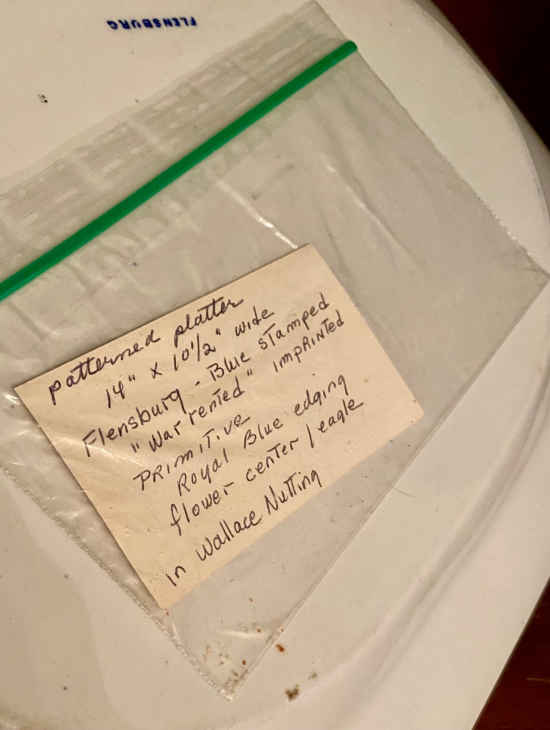 FLENSBURG
patterned platter
14" x 10 1/2" wide
Flensburg - Blue stamped
"Warrented" imprinted
PRIMITIVE
Royal Blue edging
flower center / eagle
In Wallace Nutting